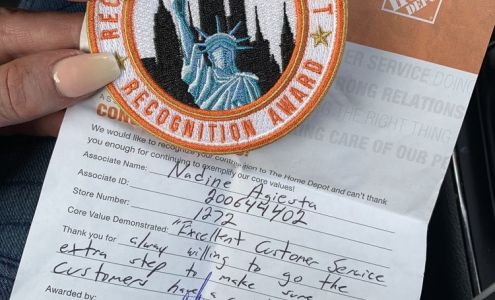 RECOGNITION AWARD
DEPOT
ER SERVICE DOING
NG RELATIONS
THE RIGHT THING
ING CARE OF OUR PE
We would like to recognize your contribution to The Home Depot and can't thank
you enough for continuing to exemplify our core values!
Associate Name: Nadine Agiesta
Associate ID: 200644402
Store Number: 1272
Core Value Demonstrated: "Excellent Customer Service
Thank you for always willing to go the
extra step to make sure
customers have a
Awarded by: